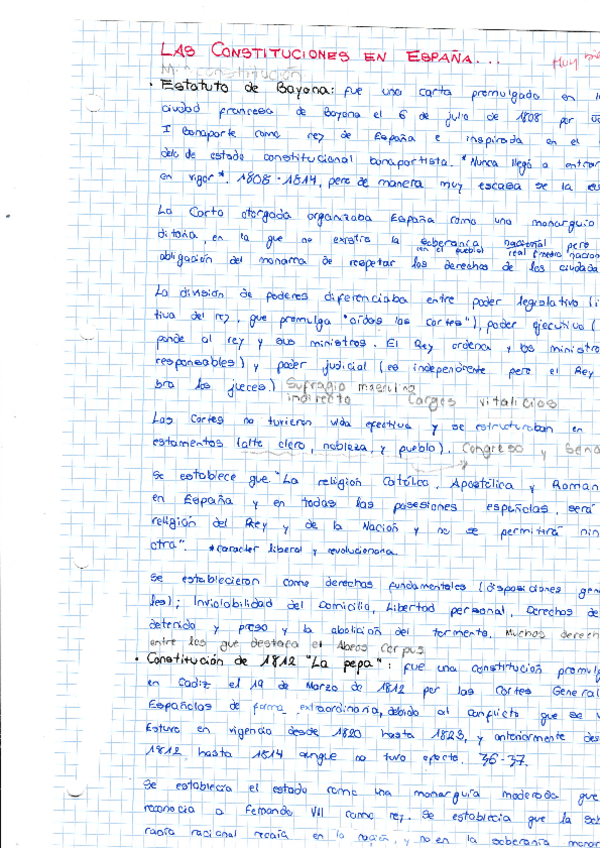 LAS CONSTITUCIONES EN ESPAÑA... Muy bie
Mini constitución
· Estatuto de Bayona: fue una carta promulgada en l
ciudad francesa de Bayona el 6 de julio de 1808 por Jo
I Bonaparte como rey de España e inspirada en el
delo de estado constitucional bonapartista. *Nunca llegó a entrar
en vigor*. 1808-1814, pero de manera muy escasa
La Carta otorgada organizaba España como una monarquía
ditaria, en la que no existía la soberanía nacional pero
en el pueblo
obligación del monarca de respetar los derechos de los ciudada
La división de poderes diferenciaba entre poder legislativo (i
tiva del rey, que promulga "oídas las cortes"), poder ejecutivo (
ponde al rey y sus ministros. El Rey ordena y los ministro
responsables) y poder judicial (es independiente pero el Rey
bra los jueces.) Sufragio masculino
indirecto Cargos vitalicios
Las Cortes no tuvieron vida efectiva y se estructuraban en
estamentos (alto clero, nobleza, y pueblo). Congreso y Sena
Se establece que "La religión Católica, Apostólica y Roman
en España y en todas las posesiones españolas, será
religión del Rey y de la Nación y no se permitirá nin
otra". *caracter liberal y revolucionaria.
Se establecieron como derechos fundamentales (disposiciones gene
les); Inviolobilidad del domicilio, Libertad personal, Derechos de
detenido y preso y la abolición del tormento. Muchos derech
entre los que destaca el Abeas Corpus
· Constitución de 1812 "La pepa": fue una constitución promulg
en Cadiz el 19 de Marzo de 1812 por las Cortes General
Españolas de forma extraordinaria, debido al conflicto que se v
Estuvo en vigencia desde 1820 hasta 1823, y anteriormente des
1812 hasta 1814 aunque no tuvo efecto. 36-37.
Se establecía el estado como una monarquía moderada que
reconocía a Fernando VII como rey. Se establecía que la sob
ranía nacional recaía en la nación, y no en la soberanía monar